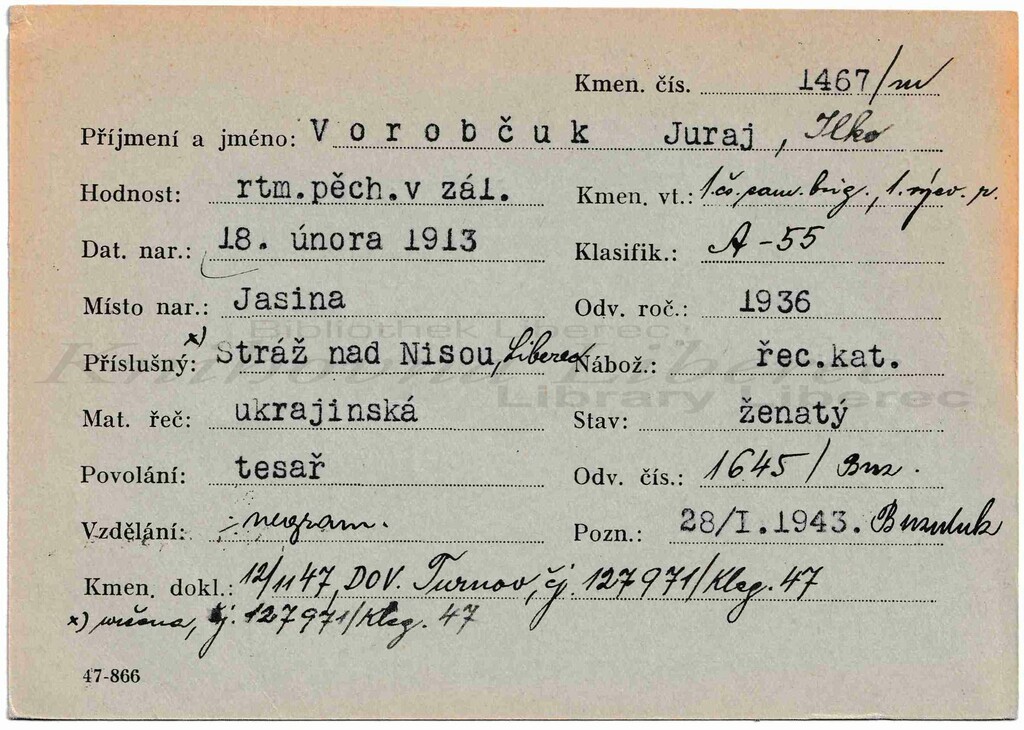 Kmen. čís. 1467/m
Příjmení a jméno: Vorobčuk Juraj, Ilko
Hodnost: rtm.pěch.v zál. Kmen. vt.: 1.čs.sam.brig., 1.
Dat. nar.: 18. února 1913 Klasifik.: A-55
Místo nar.: Jasina Odv. roč.: 1936
Bibliothek Liberec
x)
Příslušný: Stráž nad Nisou, Liberec Nábož.: řec.kat.
Knihovna Liberec
Library Liberec
Mat. řeč: ukrajinská Stav: ženatý
Povolání: tesař Odv. čís.: 1645/Buz.
Vzdělání: negram. Pozn.: 28/I.1943. Buzuluk
Kmen. dokl.: 12/11 47, DOV. Turnov, čj. 127971/Kleg. 47
x) čj. 127971/Kleg. 47
47-866